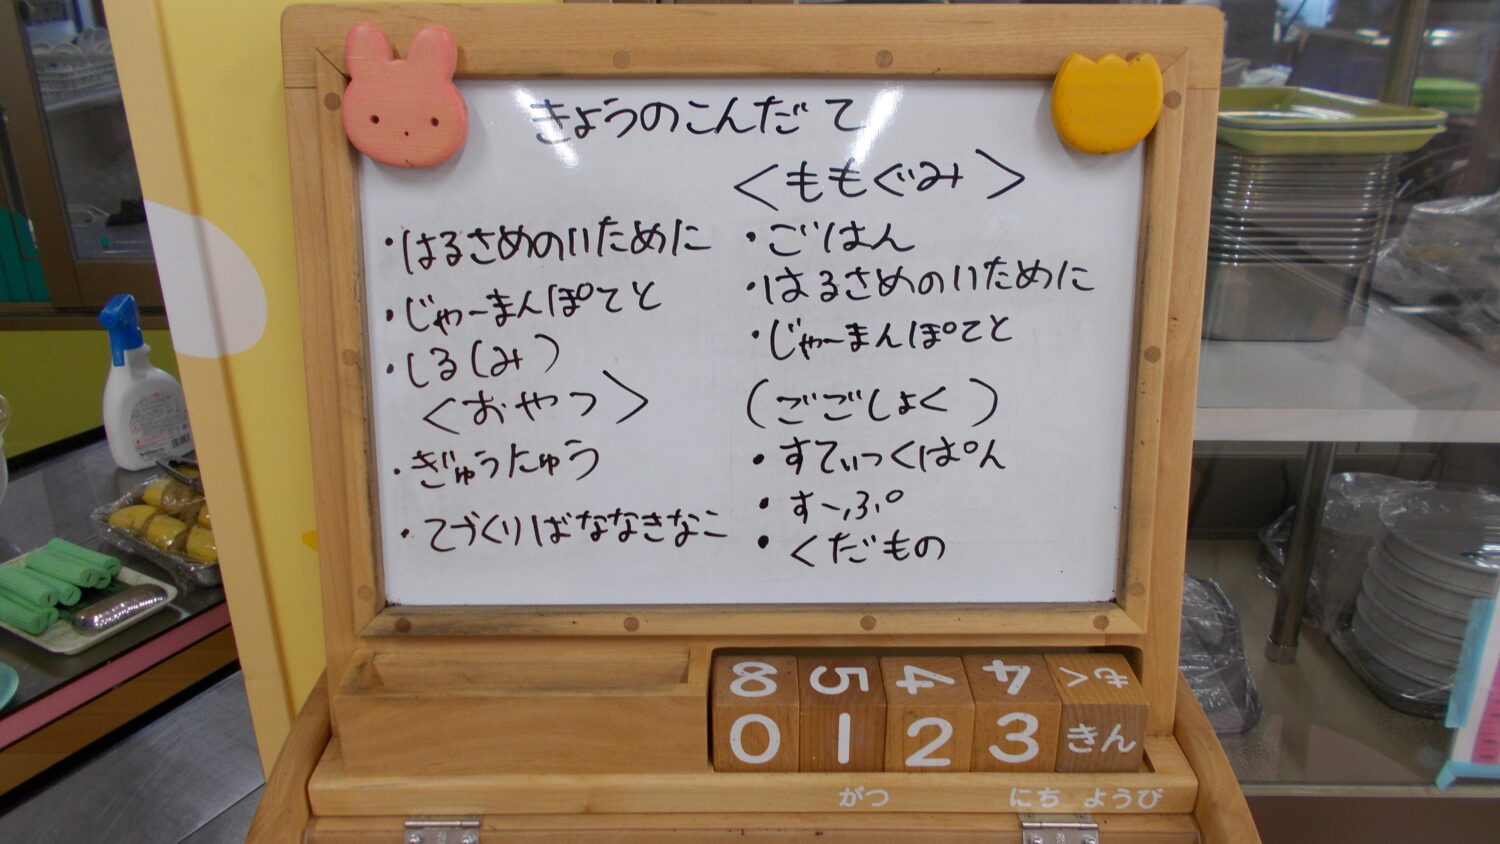 きょうのこんだて
・はるさめのいために
・じゃーまんぽてと
・しる(み)
<おやつ>
・ぎゅうにゅう
・てづくりばななきなこ
<ももぐみ>
・ごはん
・はるさめのいために
・じゃーまんぽてと
(ごごしょく)
・すてぃっくぱん
・すーぷ
・くだもの
8 5 4 4 もく
0 1 2 3 きん
がつ にち ようび